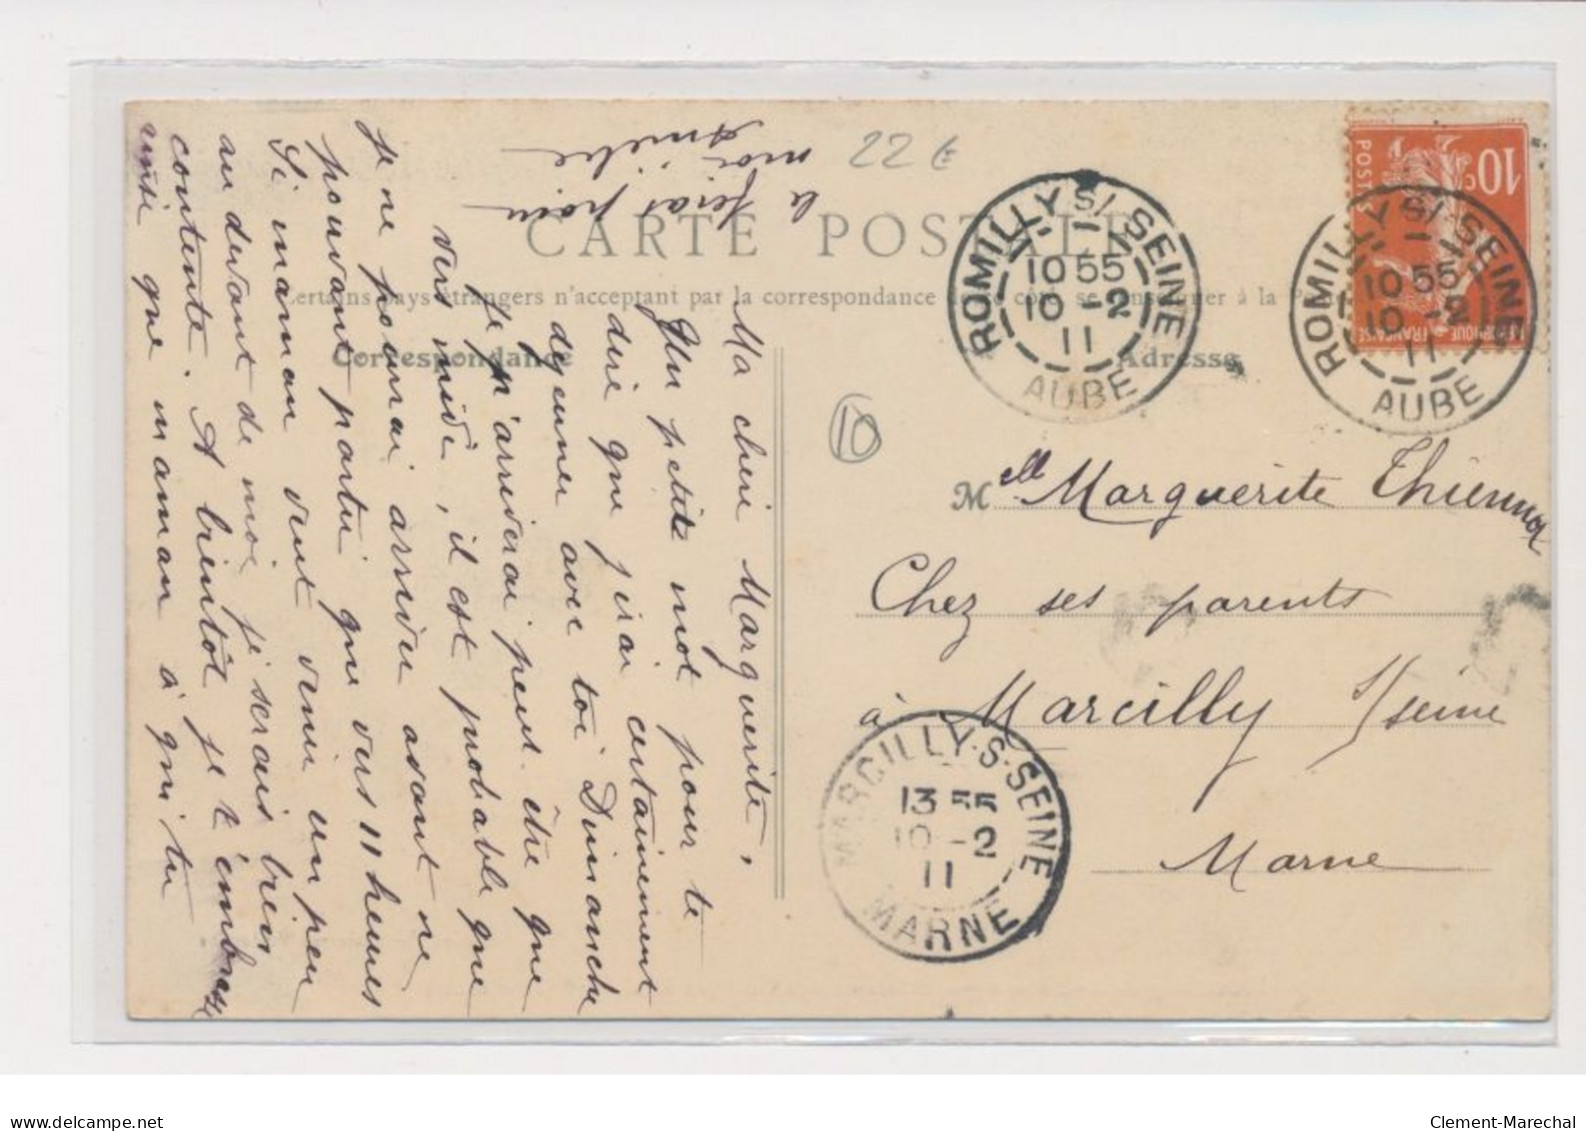 CARTE POSTALE
Certains pays étrangers n'acceptant pas la correspondance de ce côté, se renseigner à la P
Correspondance
Adresse
22 €
10
10c
POSTES
REPUBLIQUE FRANÇAISE
ROMILLY S/ SEINE
10 55
10 -2
11
AUBE
ROMILLY S/ SEINE
10 55
10 -2
11
AUBE
Melle Marguerite Thiennot
Chez ses parents
à Marcilly s/seine
Marne
MARCILLY-S-SEINE
13 55
10 -2
11
MARNE
Ma cheri Marguerite,
Un petit mot pour te
dire que j'irai certainement
dejeuner avec toi Dimanche
Je n'arriverai peut être que
vers midi, il est probable que
je ne pourrai arriver avant ne
pouvant partir que vers 11 heures
Si maman veut venir un peu
au devant de moi je serais bien
contente. A bientôt je t'embrasse
ainsi que maman à qui tu
la feras pour
moi
delcampe.net
Clement-Marechal